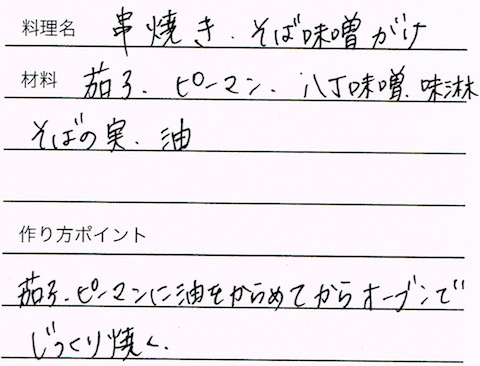 料理名 串焼き、そば味噌がけ
材料 茄子、ピーマン、八丁味噌、味淋
そばの実、油
作り方ポイント
茄子、ピーマンに油をからめてからオーブンで
じっくり焼く.